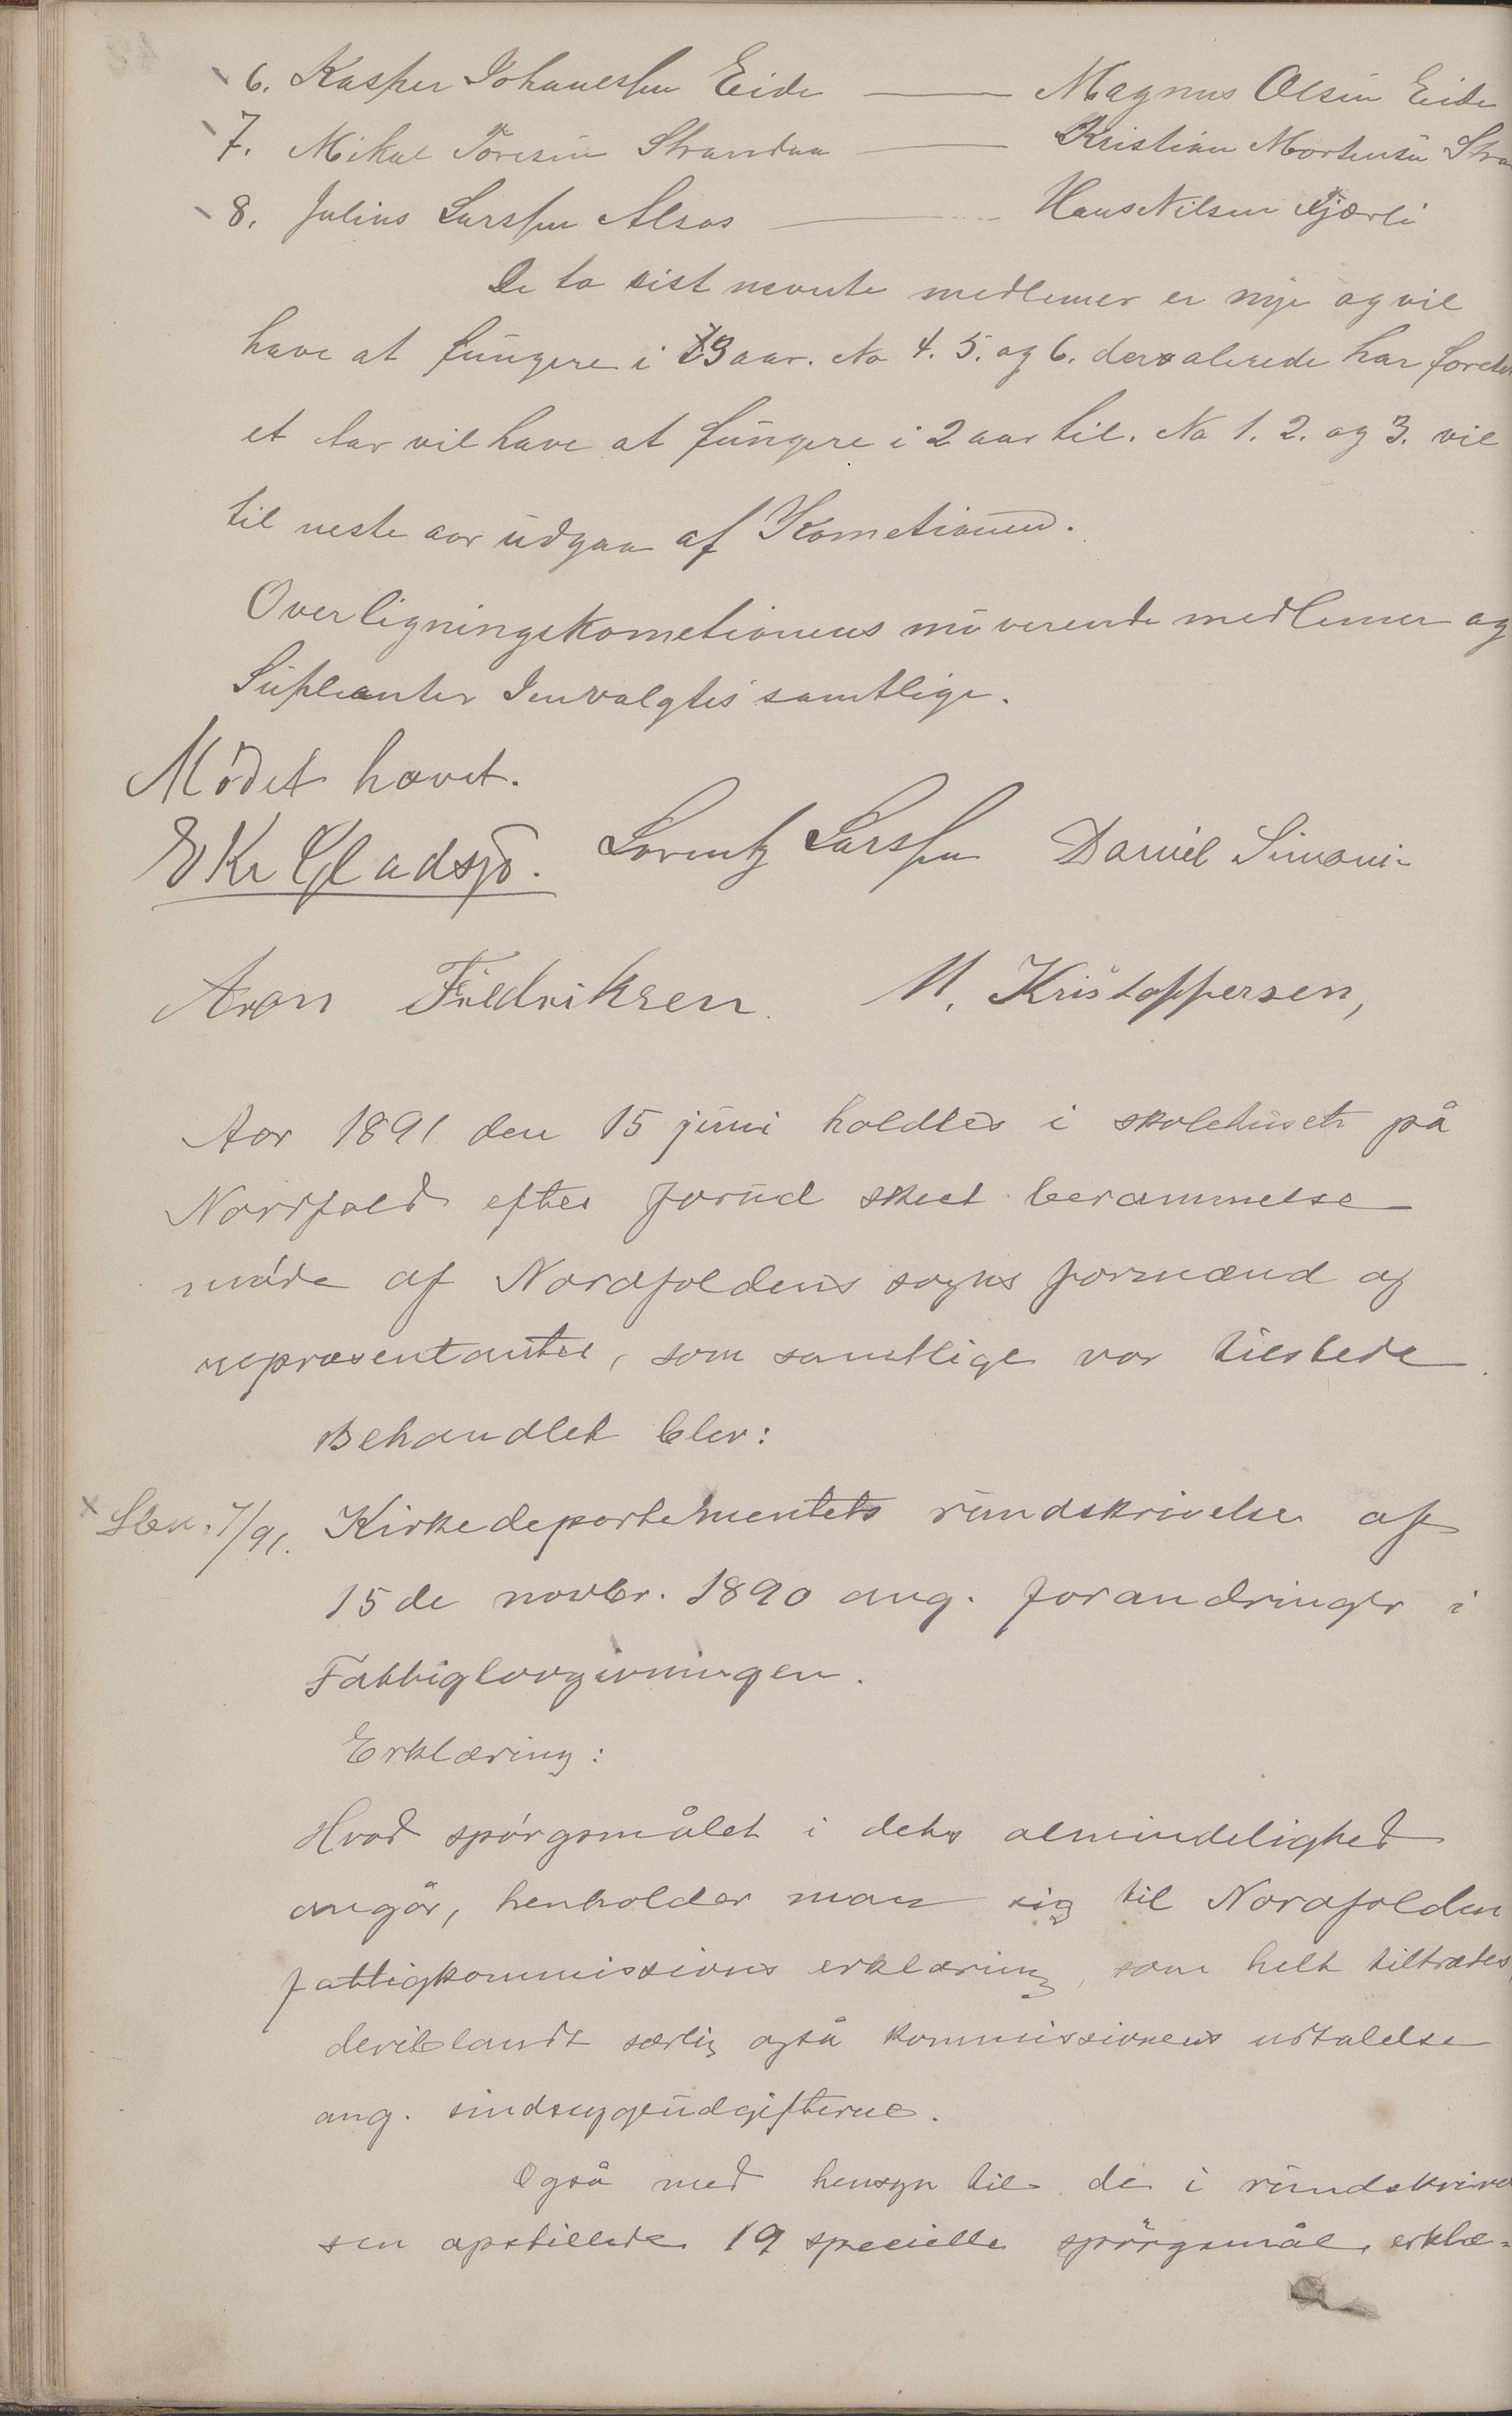 6. Kasper Johanessen Eide — Magnus Olsen Eide
7. Mikal Toresen Strandaa — Kristian Mortensen Stra
8. Julius Larssen Alsos — Hans Nilsen Tjærli
De to sist nevnte medlemer er nye og vil
have at fungere i 3 aar. No 4. 5. og 6. der alerede har
et aar vil have at fungere i 2 aar til. No 1. 2. og 3. vil
til neste aar udgaa af Kometionen.
Overligningskometionens nuverende medlemer og
Supleanter Jenvalgtes samtlige.
Mödet hævet.
E Kr Gladsjö. Lorentz Larssen Daniel Simoni-
Aron Fredriksen. M. Kristoppersen,
Aar 1891 den 15 juni holdtes i skolehuset på
Nordfold efter forud skeet berammelse
møde af Nordfoldens sogns formænd og
repræsentanter, som samtlige var tilstede.
Behandlet blev:
x Sen. 7/91. Kirkedepartementets rundskrivelse af
15de novbr. 1890 ang. forandringer i
Fattiglovgivningen.
Erklæring:
Hvad spörgsmålet i dets almindelighed
angår, henholder man sig til Nordfolden
fattigkommissions erklæring, som helt tiltrædes,
deriblandt særlig også kommissionens udtalelse
ang. sindsygeudgifterne.
Også med hensyn til de i rundskrivel
sen opstillede 19 specielle spörgsmål, erklæ-